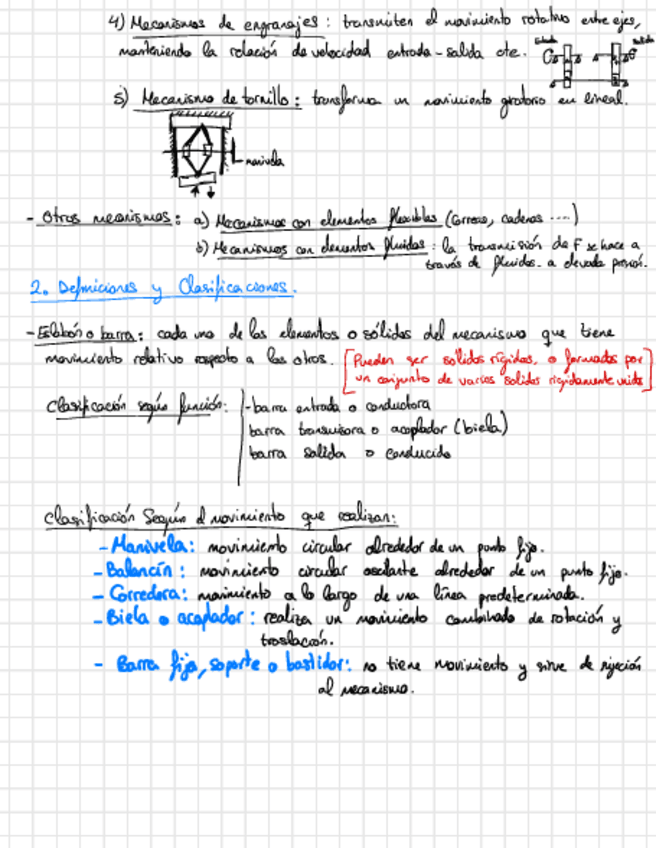 4) Mecanismos de engranajes : transmiten el movimiento rotativo entre ejes,
manteniendo la relación de velocidad entrada-salida cte.
Entrada
Salida
5) Mecanismo de tornillo : transforma un movimiento giratorio en lineal.
manivela
- Otros mecanismos : a) Mecanismos con elementos flexibles (Correas, cadenas ....)
b) Mecanismos con elementos fluidos : la transmisión de F se hace a
través de fluidos. a elevada presión.
2. Definiciones y Clasificaciones.
- Eslabón o barra : cada uno de los elementos o sólidos del mecanismo que tiene
movimiento relativo respecto a los otros. [Pueden ser solidos rígidos, o formados por
un conjunto de varios solidos rigidamente unidos]
Clasificación según función:
- barra entrada o conductora
barra transmisora o acoplador (biela)
barra salida o conducida
Clasificación Según el movimiento que realizan:
- Manivela: movimiento circular alrededor de un punto fijo.
- Balancín : movimiento circular oscilante alrededor de un punto fijo.
- Corredera: movimiento a lo largo de una línea predeterminada.
- Biela o acoplador : realiza un movimiento combinado de rotación y
traslación.
- Barra fija, soporte o bastidor: no tiene movimiento y sirve de sujeción
al mecanismo.